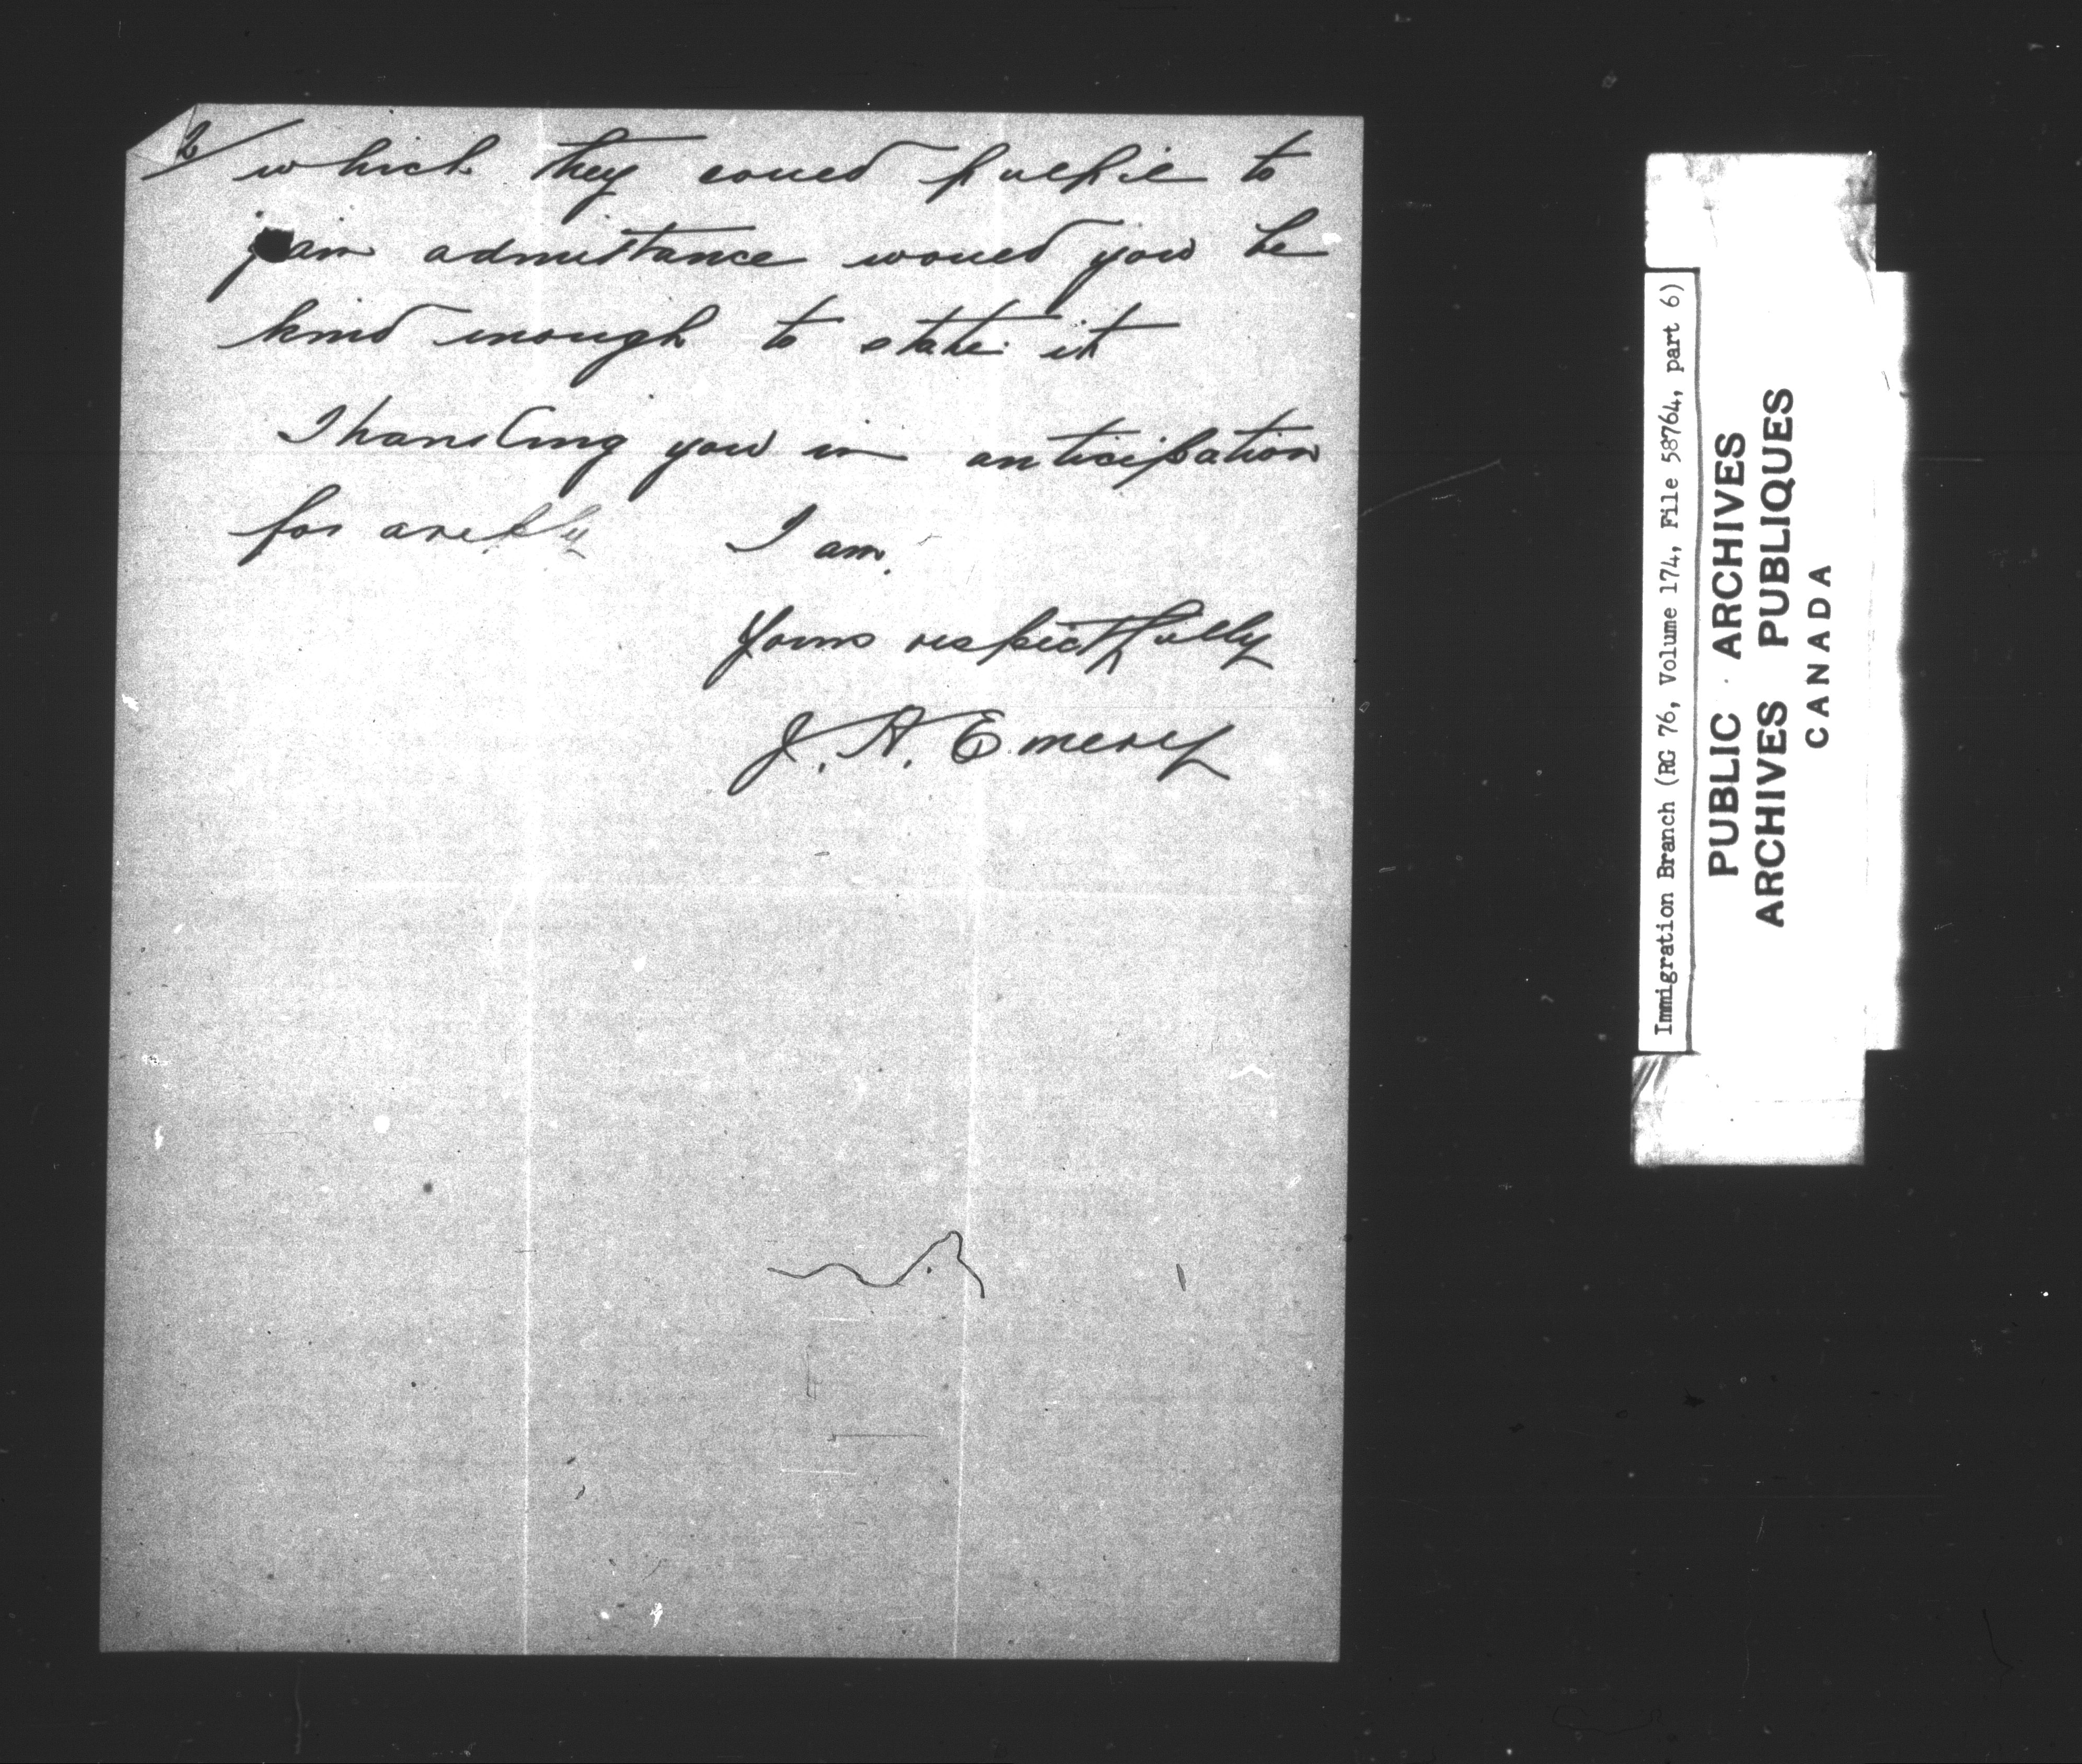 2/ which they could fulfil to
gain admittance would you be
kind enough to state it
Thanking you in anticipation
for a reply I am.
Yours respectfully
J. A. Emery
Immigration Branch (RG 76, Volume 174, File 58764, part 6)
PUBLIC ARCHIVES
ARCHIVES PUBLIQUES
CANADA